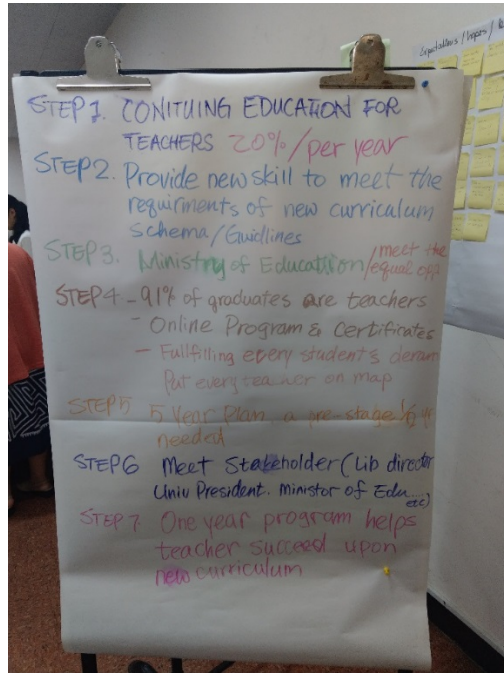 Expectations / Hopes /
STEP 1. CONITUING EDUCATION FOR
TEACHERS 20%/per year
STEP 2. Provide new skill to meet the
requirments of new curriculum
Schema/Guidlines
STEP 3. Ministry of Education/meet the
equal opp
STEP 4 - 91% of graduates are teachers
- Online Program & Certificates
- Fullfilling every student's deman
Put every teacher on map
STEP 5 5 Year Plan, a pre-stage
needed
STEP 6 Meet Stakeholder (Lib director
Univ President. Ministor of Edu...
etc)
STEP 7 One year program helps
teacher succeed upon
new curriculum